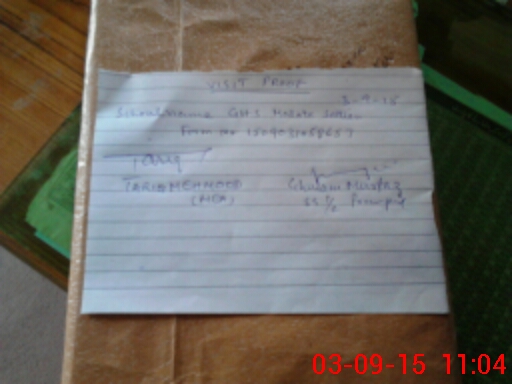 VISIT PROOF
3-9-15
School Name GHS
Form No 1509031058657
Tariq
TARIQ MEHMOOD
(MEA)
Ghulam Murtaza
SS I/C Principal
03-09-15 11:04